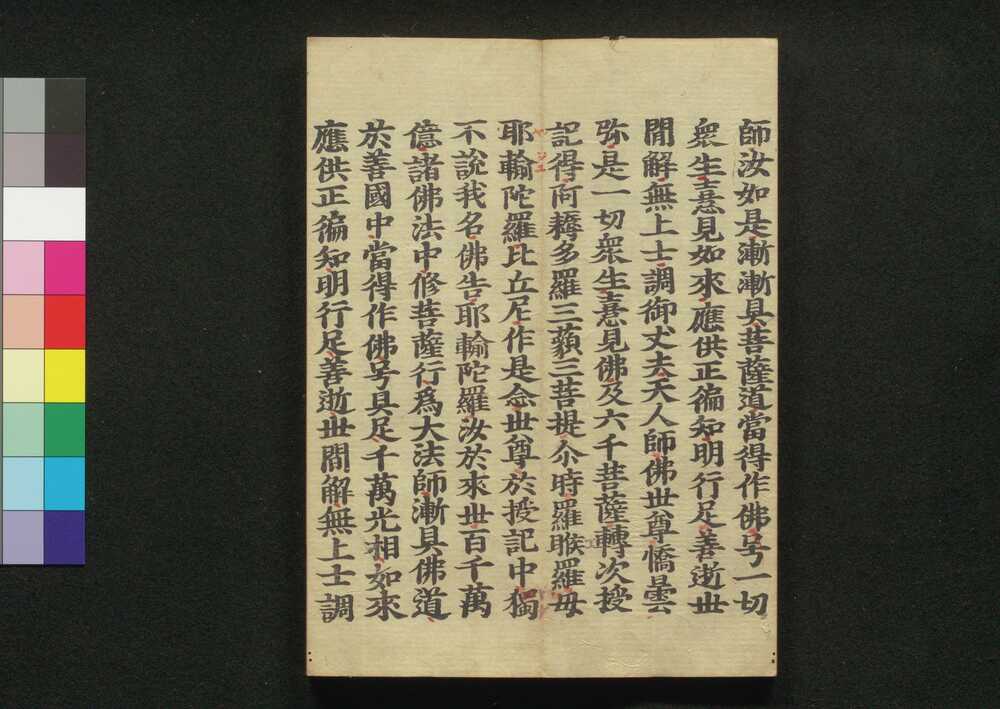 師汝如是漸漸具菩薩道當得作佛号一切
衆生憙見如來應供正徧知明行足善逝世
間解無上士調御丈夫天人師佛世尊憍曇
弥是一切衆生憙見佛及六千菩薩轉次授
記得阿耨多羅三藐三菩提尒時羅睺羅母
耶輸陀羅比丘尼作是念世尊於授記中獨
不說我名佛告耶輸陀羅汝於來世百千萬
億諸佛法中修菩薩行爲大法師漸具佛道
於善國中當得作佛号具足千萬光相如來
應供正徧知明行足善逝世間解無上士調